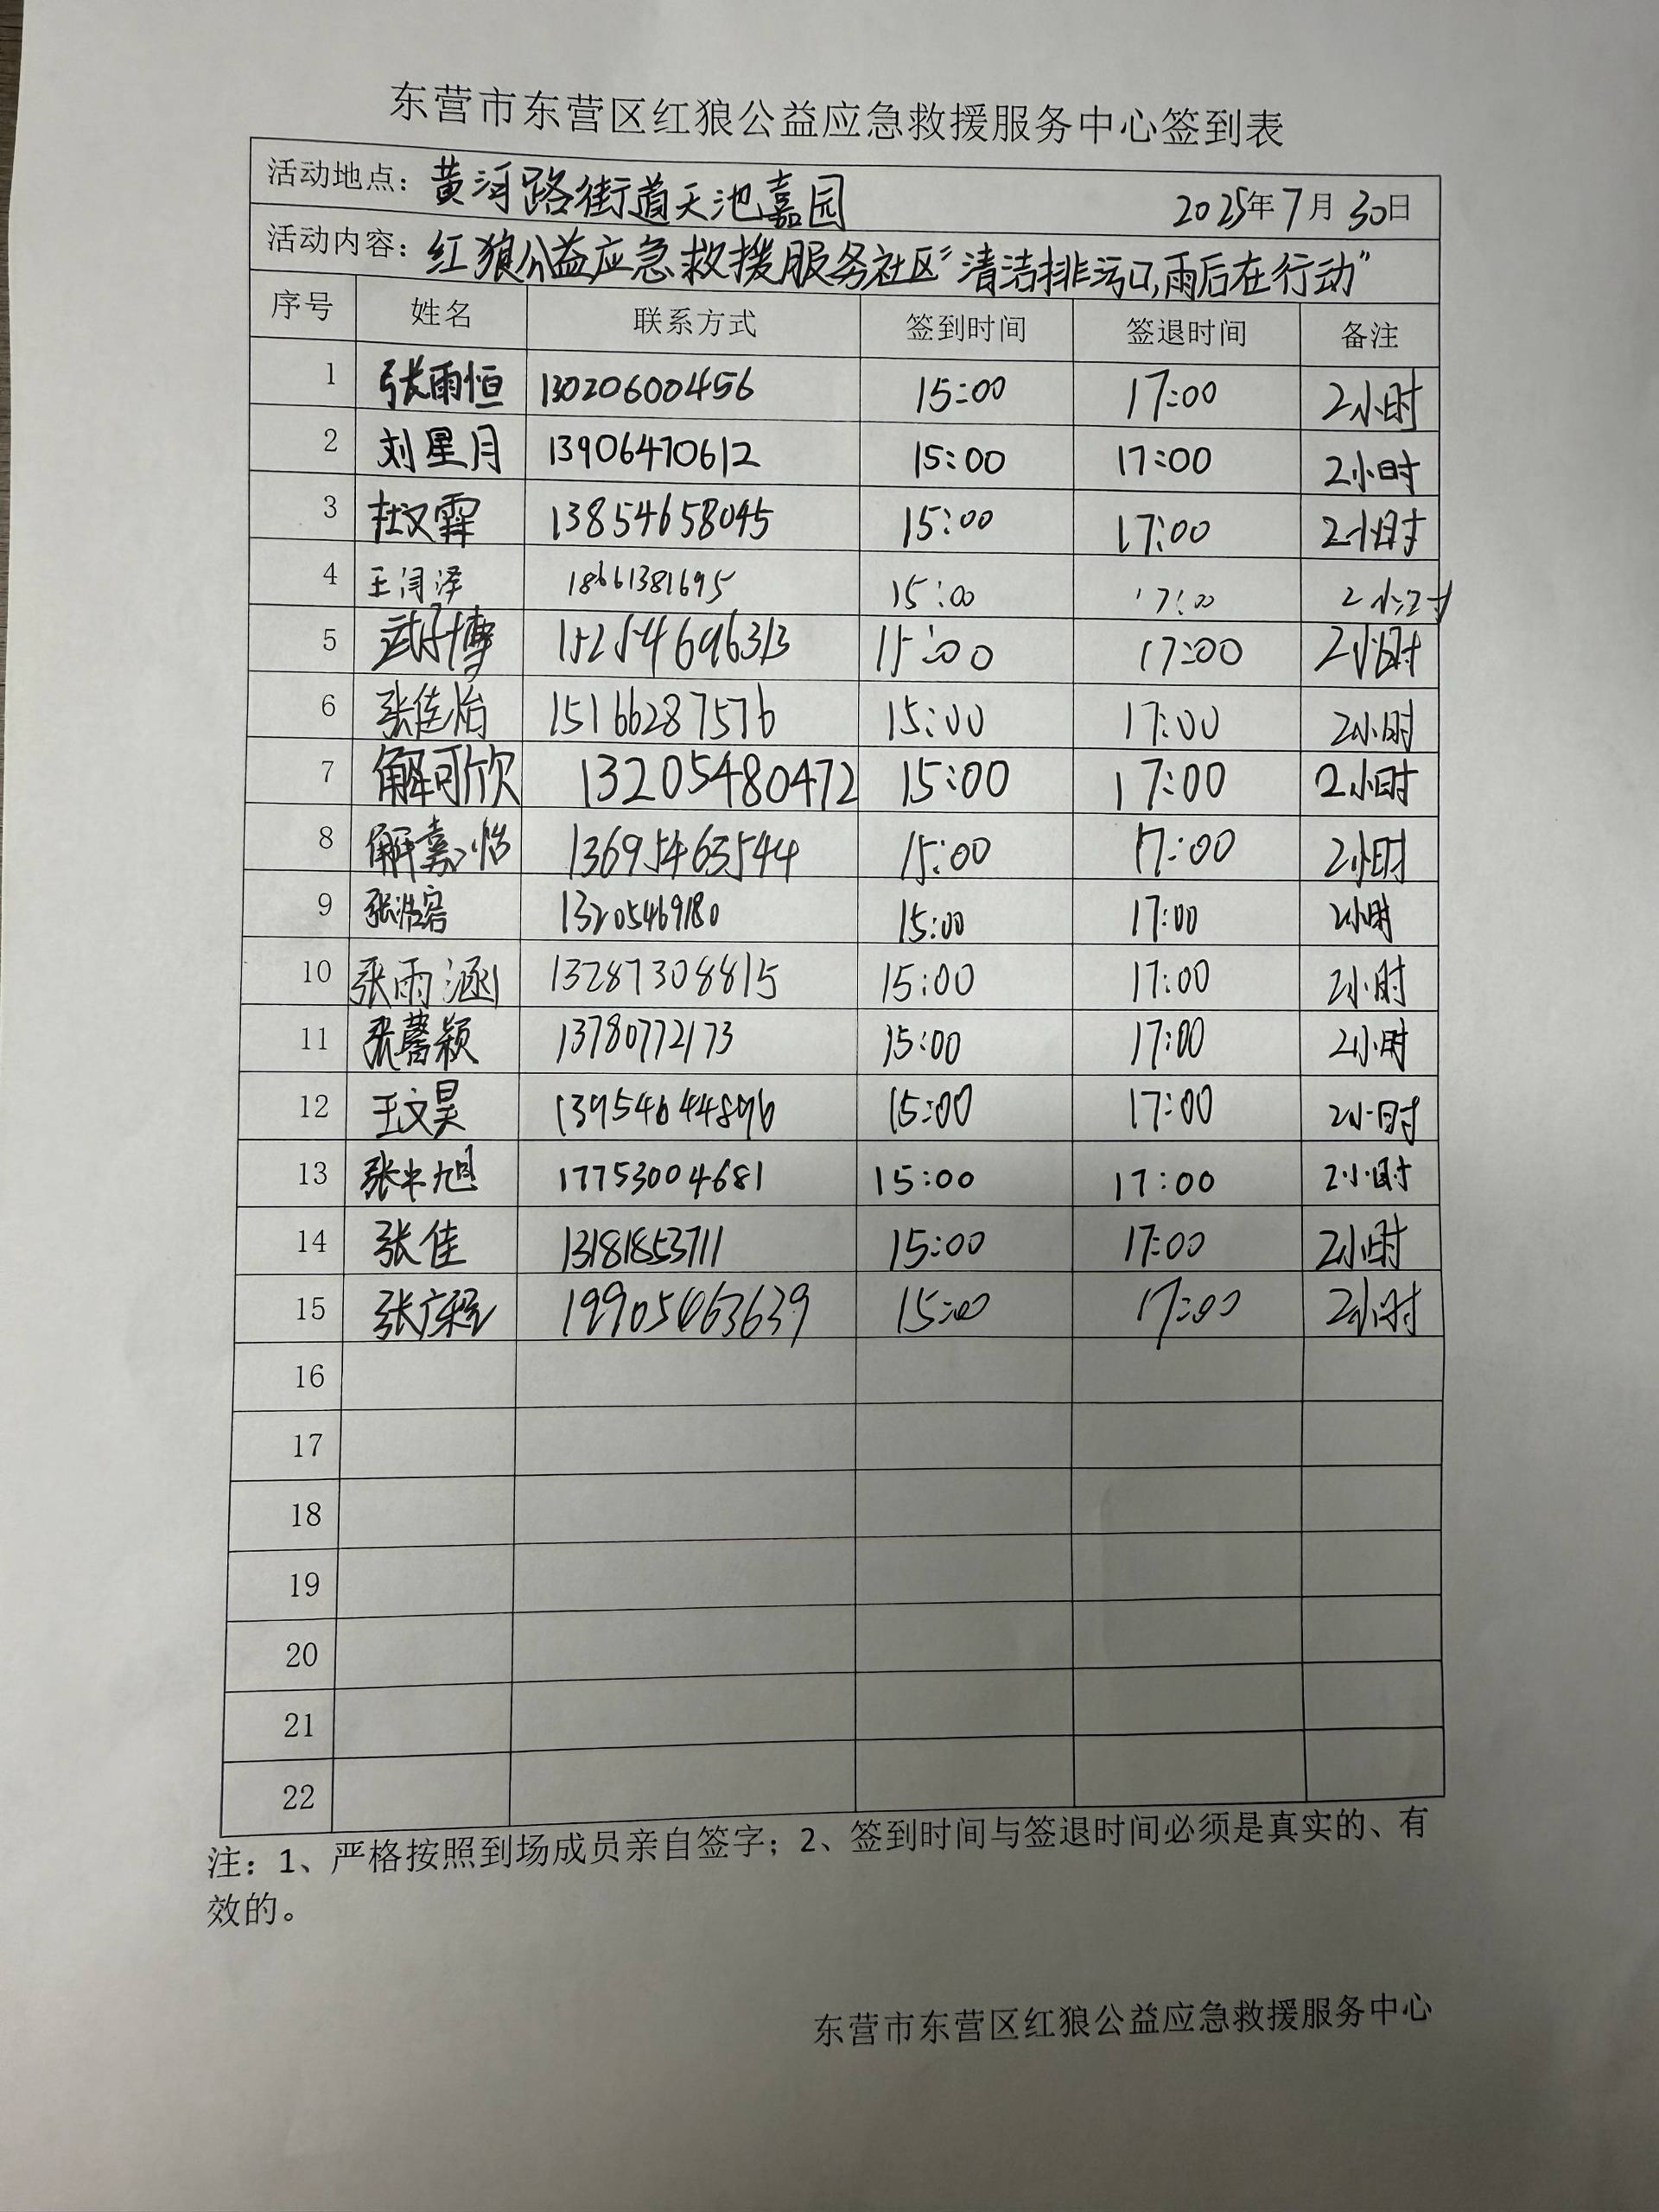 东营市东营区红狼公益应急救援服务中心签到表
活动地点：黄河路街道天池嘉园 2025年7月30日
活动内容：红狼公益应急救援服务社区“清洁排污口,雨后在行动”
序号 姓名 联系方式 签到时间 签退时间 备注
1 张雨恒 13020600456 15:00 17:00 2小时
2 刘星月 13906470612 15:00 17:00 2小时
3 杜汶霏 13854658045 15:00 17:00 2小时
4 王闰泽 18661381695 15:00 17:00 2小时
5 武子博 15254696313 15:00 17:00 2小时
6 张佳怡 15166287576 15:00 17:00 2小时
7 解可欣 13205480472 15:00 17:00 2小时
8 解嘉怡 13695463544 15:00 17:00 2小时
9 张浩容 13205469180 15:00 17:00 2小时
10 张雨涵 13287308815 15:00 17:00 2小时
11 张馨颖 13780772173 15:00 17:00 2小时
12 王文昊 13954644896 15:00 17:00 2小时
13 张中旭 17753004681 15:00 17:00 2小时
14 张佳 13181853711 15:00 17:00 2小时
15 张广程 19905463639 15:00 17:00 2小时
16
17
18
19
20
21
22
注：1、严格按照到场成员亲自签字；2、签到时间与签退时间必须是真实的、有
效的。
东营市东营区红狼公益应急救援服务中心